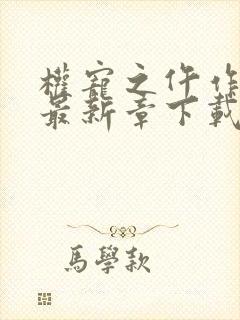 權寵之仵作
最新章下載
馬學款